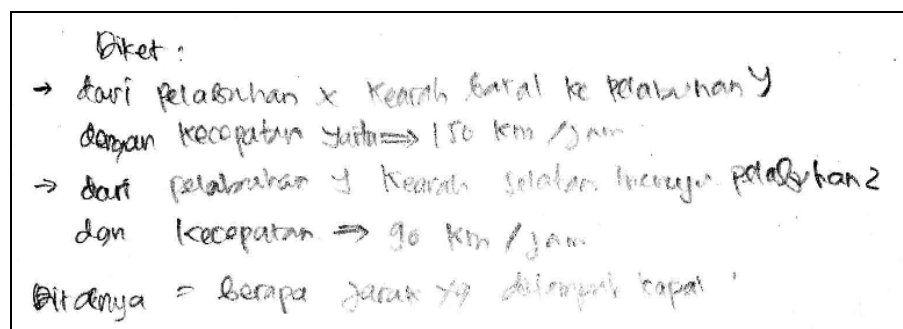 Diket :
→ dari pelabuhan x kearah barat ke pelabuhan Y
dengan kecepatan yaitu ⇒ 150 km / jam
→ dari pelabuhan y kearah selatan menuju pelabuhan z
dgn kecepatan ⇒ 90 km / jam
Ditanya = berapa jarak yg ditempuh kapal